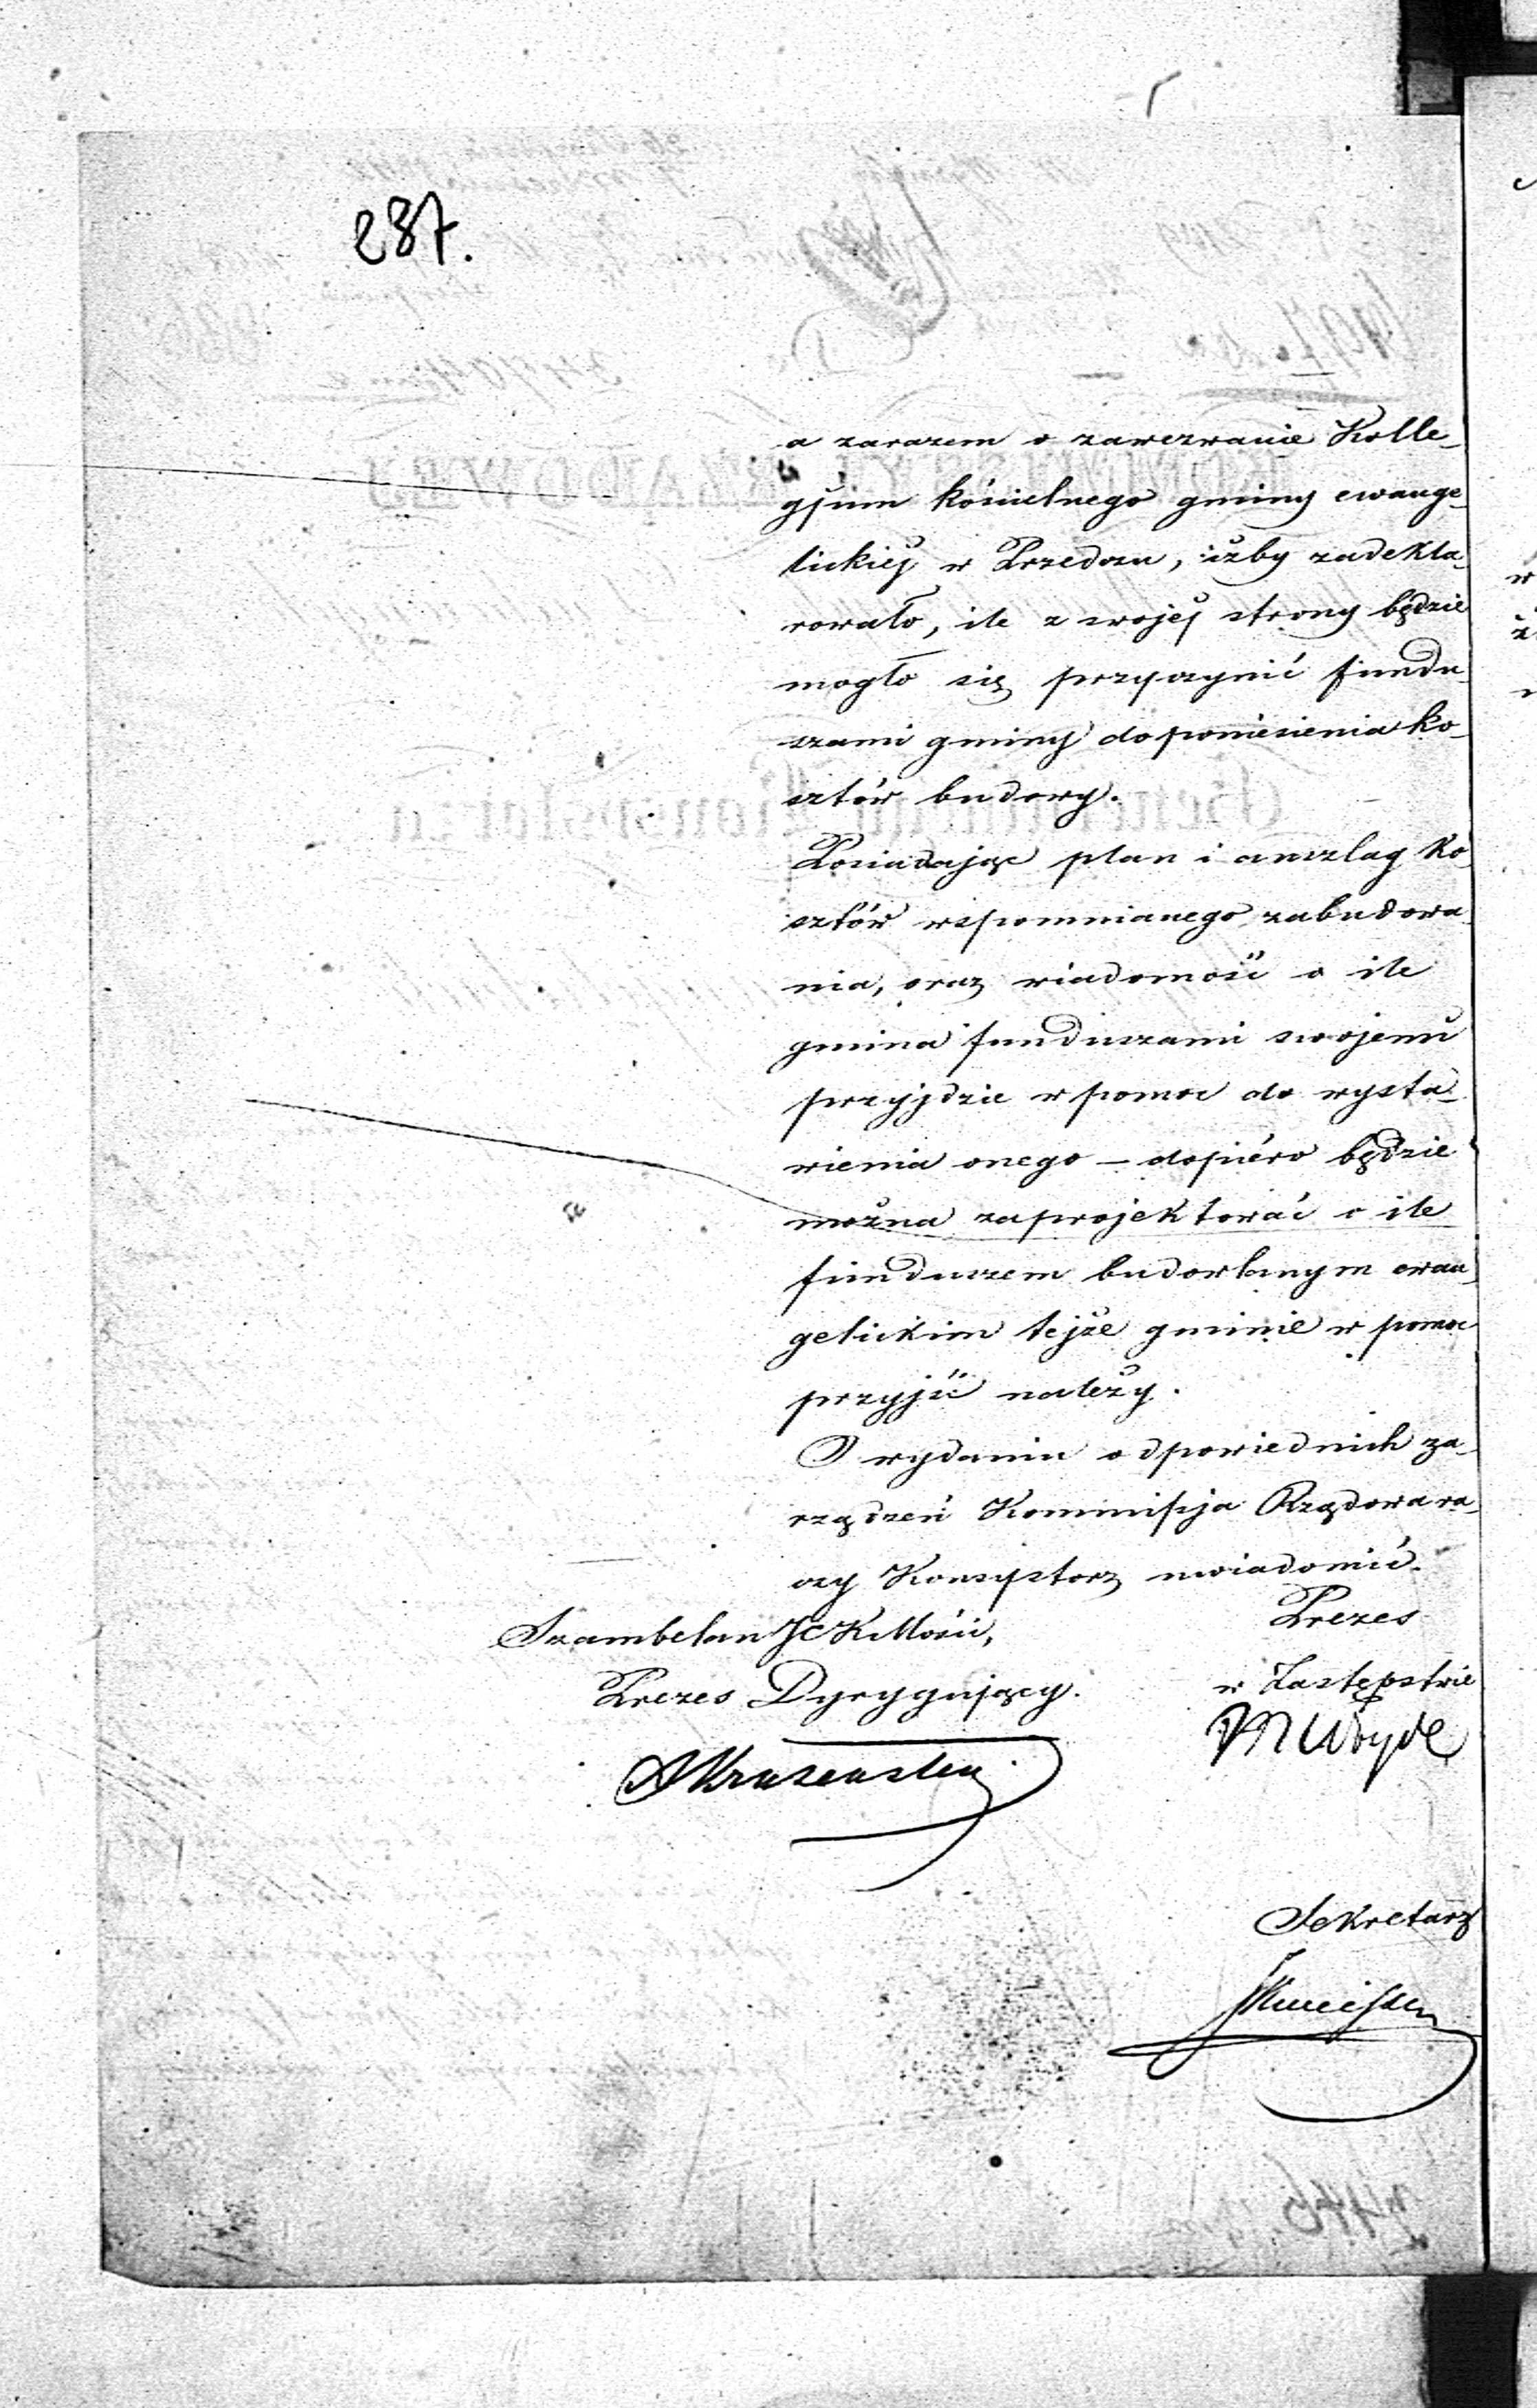 287.
a zarazem o zawezwanie Kolle-
gjum kościelnego gminy ewange-
lickiej w Przedczu, iżby zadekla-
rowało, ile z swojej strony będzie
mogło się przyczynić fundu-
szami gminy do poniesienia ko-
sztów budowy.
Posiadając plan i anszlag ko-
sztów wspomnianego zabudowa-
nia, oraz wiadomość o ile
gmina funduszami swojemi
przyjdzie w pomoc do wysta-
wienia onego — dopiéro będzie
można zaprojektować o ile
funduszem budowlanym ewan-
gelickim tejże gminie w pomoc
przyjść należy.
O wydaniu odpowiednich za-
rządzeń Kommissja Rządowa ra-
czy Konsystorz uwiadomić.
Prezes
Szambelan JCKMości,
w Zastępstwie
Prezes Dyrygujący.
Sekretarz